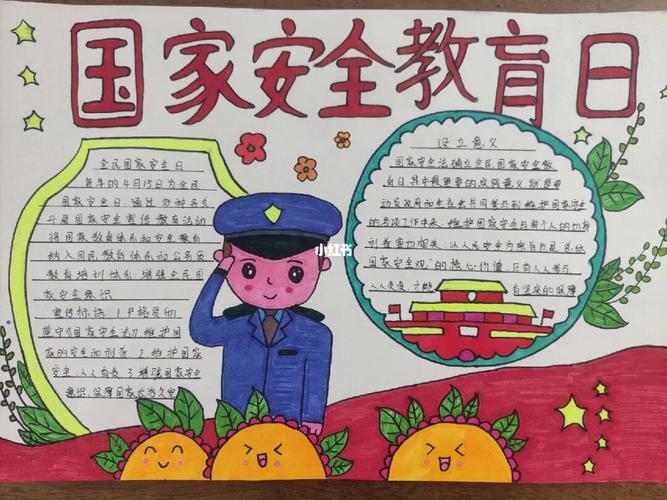 国家安全教育日
全民国家安全日
每年的4月15日为全民
国家安全日，通过多种形式
开展国家安全宣传教育活动
将国家教育体系和安全教育
纳入国民教育体系和公务员
教育培训体系，增强全民国
家安全意识
宣传标语：1.严格贯彻
遵守《国家安全法》维护国
家的安全和利益.2.维护国家
安全，人人有责.3.增强国家安全
意识，保障国家长治久安
设立意义
国家安全法确立全民国家安全教
育日其中最重要的
动员政府和
的各项工作中来，维护国家安全与每个人的切身
利益密切相关，以人民安全为宗旨也是总体
国家安全观"的核心价值，只有人人参与
人人负责，才能
自觉的保障
小红书